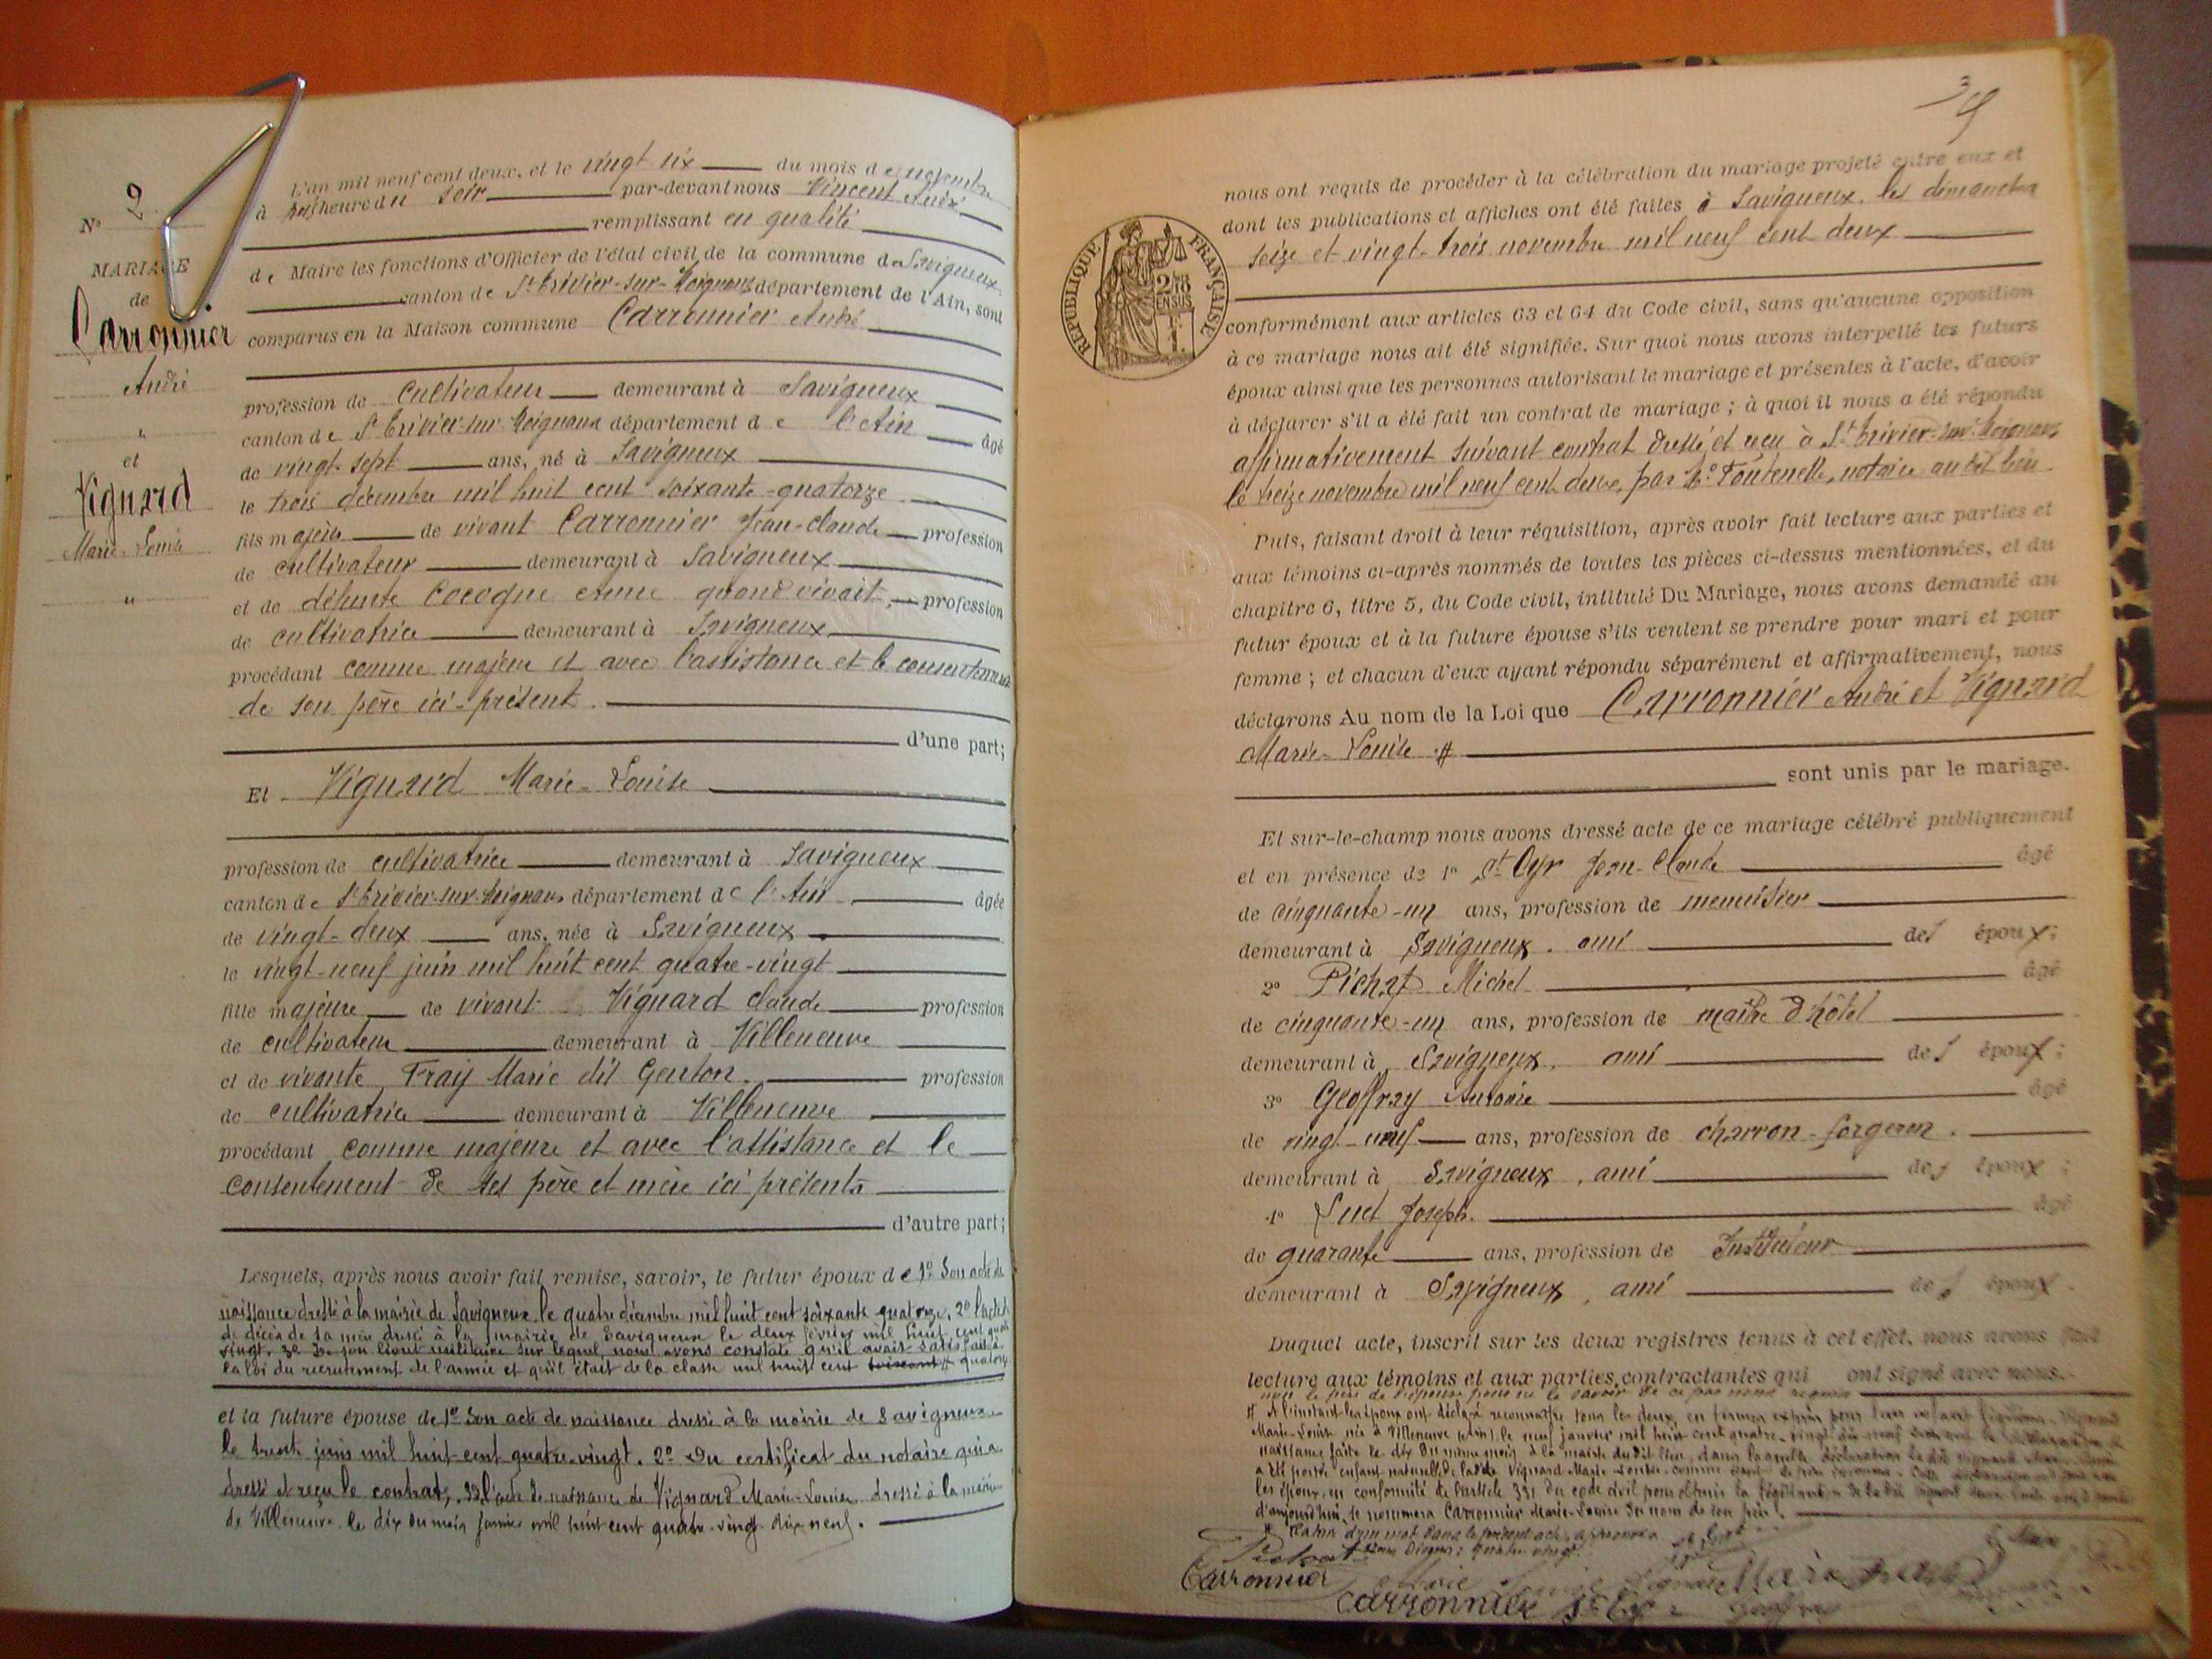 N° 9
MARIAGE
de
Carronnier
André
"
et
Vignard
Marie-Louise
"
L'an mil neuf cent deux, et le vingt six du mois de novembre
à heure du soir par-devant nous Vincent André
remplissant en qualité
de Maire les fonctions d'Officier de l'état civil de la commune de Savigneux
canton de St Trivier-sur-Moignans département de l'Ain, sont
comparus en la Maison commune Carronnier André
profession de cultivateur demeurant à Savigneux
canton de St Trivier-sur-Moignans département de l'Ain âgé
de vingt-sept ans, né à Savigneux
le trois décembre mil huit cent soixante-quatorze
fils majeur de vivant Carronnier Jean-Claude profession
de cultivateur demeurant à Savigneux
et de défunte Cocogne Anne quand vivait, profession
de cultivatrice demeurant à Savigneux
procédant comme majeur et avec l'assistance et le consentement
de son père ici-présent.
d'une part;
Et Vignard Marie-Louise
profession de cultivatrice demeurant à Savigneux
canton de St Trivier-sur-Moignans département de l'Ain âgée
de vingt-deux ans, née à Savigneux
le vingt-neuf juin mil huit cent quatre-vingt
fille majeure de vivant Vignard Claude profession
de cultivateur demeurant à Villeneuve
et de vivante Fray Marie dit Genton. profession
de cultivatrice demeurant à Villeneuve
procédant comme majeure et avec l'assistance et le
consentement de ses père et mère ici présents
d'autre part;
Lesquels, après nous avoir fait remise, savoir, le futur époux de 1° Son acte de
naissance dressé à la mairie de Savigneux le quatre décembre mil huit cent soixante quatorze, 2° l'acte
de décès de sa mère dressé à la mairie de Savigneux le deux février mil huit cent quatre
vingt. 3° De son livret militaire sur lequel nous avons constaté qu'il avait satisfait à
la loi du recrutement de l'armée et qu'il était de la classe mil huit cent quatorze
et la future épouse de 1° Son acte de naissance dressé à la mairie de Savigneux
le trente juin mil huit-cent quatre-vingt. 2° Du certificat du notaire qui a
dressé et reçu le contrat, 3° l'acte de naissance de Vignard Marie-Louise dressé à la mairie
de Villeneuve le dix du mois janvier mil huit cent quatre-vingt dix neuf.
39
nous ont requis de procéder à la célébration du mariage projeté entre eux et
dont les publications et affiches ont été faites à Savigneux, les dimanches
seize et vingt-trois novembre mil neuf cent deux
RÉPUBLIQUE FRANÇAISE
2/10 EN SUS
1 F.
conformément aux articles 63 et 64 du Code civil, sans qu'aucune opposition
à ce mariage nous ait été signifiée. Sur quoi nous avons interpellé les futurs
époux ainsi que les personnes autorisant le mariage et présentes à l'acte, d'avoir
à déclarer s'il a été fait un contrat de mariage; à quoi il nous a été répondu
affirmativement suivant contrat dressé et reçu à St Trivier-sur-Moignans
le treize novembre mil neuf cent deux, par Me Fontenelle, notaire au dit lieu.
Puis, faisant droit à leur réquisition, après avoir fait lecture aux parties et
aux témoins ci-après nommés de toutes les pièces ci-dessus mentionnées, et du
chapitre 6, titre 5, du Code civil, intitulé Du Mariage, nous avons demandé au
futur époux et à la future épouse s'ils veulent se prendre pour mari et pour
femme; et chacun d'eux ayant répondu séparément et affirmativement, nous
déclarons Au nom de la Loi que Carronnier André et Vignard
Marie-Louise #
sont unis par le mariage.
Et sur-le-champ nous avons dressé acte de ce mariage célébré publiquement
et en présence de 1° St Cyr Jean-Claude âgé
de cinquante-un ans, profession de menuisier
demeurant à Savigneux, ami des époux;
2° Pichat Michel âgé
de cinquante-un ans, profession de maître d'hôtel
demeurant à Savigneux, ami des époux;
3° Geoffray Antoine âgé
de vingt-neuf ans, profession de charron-forgeron.
demeurant à Savigneux, ami des époux;
4° Suet Joseph. âgé
de quarante ans, profession de Instituteur
demeurant à Savigneux, ami des époux.
Duquel acte, inscrit sur les deux registres tenus à cet effet, nous avons fait
lecture aux témoins et aux parties contractantes qui ont signé avec nous.
# A l'instant les époux ont déclaré reconnaître tous les deux,
Marie-Louise née à Villeneuve (Ain) le neuf janvier mil huit cent quatre-vingt dix neuf
naissance faite le dix du même mois à la mairie du dit lieu, dans laquelle déclaration la dite Vignard
a été portée enfant naturelle de la dite Vignard Marie-Louise
les époux, en conformité de l'article 331 du code civil pour obtenir la légitimation de la dite
d'aujourd'hui, se nommera Carronnier Marie-Louise du nom de son père.
Pichat
Carronnier
Carronnier St Cyr